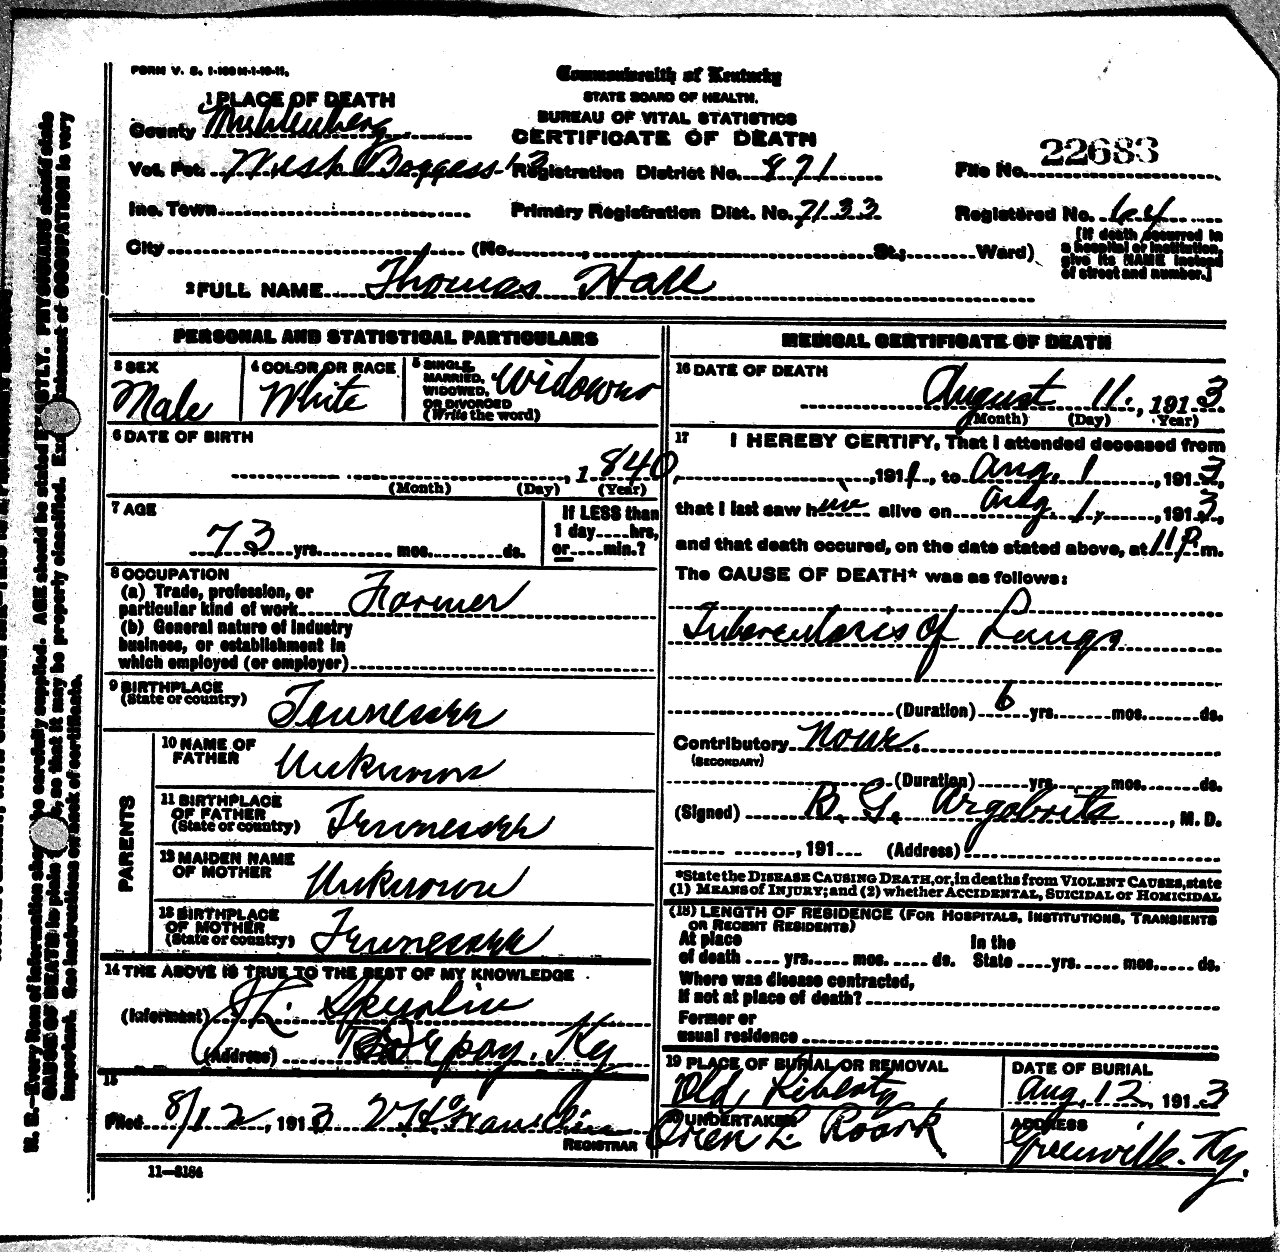 FORM V. S. 1-150M-1-10-11.
Commonwealth of Kentucky
STATE BOARD OF HEALTH.
BUREAU OF VITAL STATISTICS
CERTIFICATE OF DEATH
1 PLACE OF DEATH
County Muhlenberg
Vot. Pct. West Boggess 13 Registration District No. 871 File No. 22683
Inc. Town Primary Registration Dist. No. 7133 Registered No. 64
City (No. , St.; Ward)
[If death occurred in
a hospital or institution,
give its NAME instead
of street and number.]
2 FULL NAME Thomas Hall
PERSONAL AND STATISTICAL PARTICULARS
3 SEX
Male
4 COLOR OR RACE
White
5 SINGLE,
MARRIED,
WIDOWED,
OR DIVORCED
(Write the word)
Widower
6 DATE OF BIRTH
, 1840,
(Month) (Day) (Year)
7 AGE
73 yrs. mos. ds.
If LESS than
1 day hrs,
or min.?
8 OCCUPATION
(a) Trade, profession, or
particular kind of work Farmer
(b) General nature of industry
business, or establishment in
which employed (or employer)
9 BIRTHPLACE
(State or country) Tennessee
PARENTS
10 NAME OF
FATHER Unknown
11 BIRTHPLACE
OF FATHER
(State or country) Tennessee
12 MAIDEN NAME
OF MOTHER Unknown
13 BIRTHPLACE
OF MOTHER
(State or country) Tennessee
14 THE ABOVE IS TRUE TO THE BEST OF MY KNOWLEDGE
(Informant)
(Address) Ky
15
Filed 8/12, 1913
REGISTRAR
11—3184
MEDICAL CERTIFICATE OF DEATH
16 DATE OF DEATH
August 11, 1913
(Month) (Day) (Year)
17 I HEREBY CERTIFY, That I attended deceased from
, 1911, to Aug. 1, 1913,
that I last saw him alive on Aug. 1, , 1913,
and that death occured, on the date stated above, at 11 P m.
The CAUSE OF DEATH* was as follows:
Tuberculosis of Lungs
(Duration) 6 yrs. mos. ds.
Contributory None.
(SECONDARY)
(Duration) yrs. mos. ds.
(Signed) B. G. Argabrite, M. D.
, 191 (Address)
*State the DISEASE CAUSING DEATH, or, in deaths from VIOLENT CAUSES, state
(1) MEANS OF INJURY; and (2) whether ACCIDENTAL, SUICIDAL or HOMICIDAL
(18) LENGTH OF RESIDENCE (FOR HOSPITALS, INSTITUTIONS, TRANSIENTS
OR RECENT RESIDENTS)
At place In the
of death yrs. mos. ds. State yrs. mos. ds.
Where was disease contracted,
If not at place of death?
Former or
usual residence
19 PLACE OF BURIAL OR REMOVAL
Old Liberty
DATE OF BURIAL
Aug. 12, 1913
UNDERTAKER
Oren L. Roark
ADDRESS
Greenville. Ky.